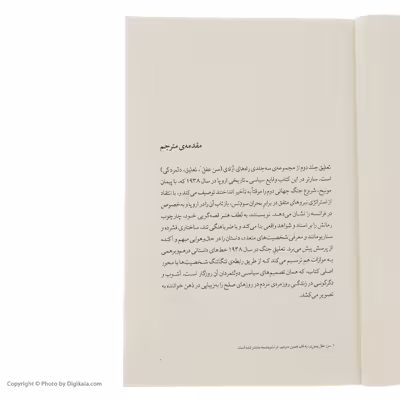 مقدمه‌ی مترجم
تعلیق جلد دوم از مجموعه‌ی سه‌جلدی راه‌های آزادی (سن عقل*، تعلیق، دلمردگی)
است. سارتر در این کتاب وقایع سیاسی ـ تاریخی اروپا در سال ۱۹۳۸ که، با پیمان
مونیخ، شروع جنگ جهانی دوم را موقتاً به تأخیر انداختند توصیف می‌کند و، با انتقاد
از استراتژی نیروهای متفق در برابر بحران سودتِنس، بازتاب آن را در اروپا و به‌خصوص
در فرانسه را نشان می‌دهد. نویسنده، به لطف هنر قصه‌گویی خود، چارچوب
رمانش را بر اسناد و شواهد واقعی بنا می‌کند و با هماهنگی تند، ساختاری فشرده و
سناریومانند و معرفی شخصیت‌های متعدد، داستان را در حال‌وهوایی مبهم و آکنده
از پرسش پیش می‌برد. تعلیقِ جنگ در سال ۱۹۳۸ خط‌های داستانی درهم‌وبرهمی
به موازات هم ترسیم می‌کند که از طریق رابطه‌ی تنگاتنگ شخصیت‌ها با محور
اصلی کتاب، که همان تصمیم‌های سیاسی دولتمردان آن روزگار است، آشوب و
دگرگونی در زندگی روزمره‌ی مردم در روزهای صلح را به‌زیبایی در ذهن خواننده به
تصویر می‌کشد.